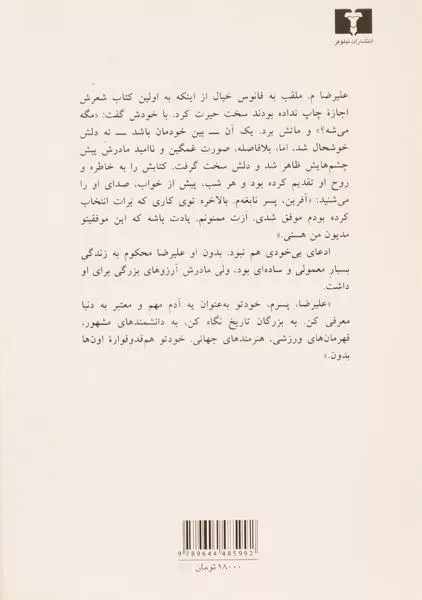 انتشارات نیلوفر
علیرضا م. ملقب به فانوس خیال از اینکه به اولین کتاب شعرش
اجازهٔ چاپ نداده بودند سخت حیرت کرد. با خودش گفت: «مگه
می‌شه؟» و ماتش برد. یک آن ــ بین خودمان باشد ــ ته دلش
خوشحال شد، اما، بلافاصله، صورت غمگین و ناامید مادرش پیش
چشم‌هایش ظاهر شد و دلش سخت گرفت. کتابش را به خاطره و
روح او تقدیم کرده بود و هر شب، پیش از خواب، صدای او را
می‌شنید: «آفرین، پسر نابغه‌م. بالاخره توی کاری که بَرات انتخاب
کرده بودم موفق شدی. ازت ممنونم. یادت باشه که این موفقیتو
مدیون من هستی.»
ادعای بی‌خودی هم نبود. بدون او علیرضا محکوم به زندگی
بسیار معمولی و ساده‌ای بود، ولی مادرش آرزوهای بزرگی برای او
داشت.
«علیرضا، پسرم، خودتو به‌عنوان یه آدم مهم و معتبر به دنیا
معرفی کن. به بزرگان تاریخ نگاه کن، به دانشمندهای مشهور،
قهرمان‌های ورزشی، هنرمندهای جهانی. خودتو هم‌قدوقوارهٔ اون‌ها
بدون.»
9 789644 485992
۱۸۰۰۰ تومان